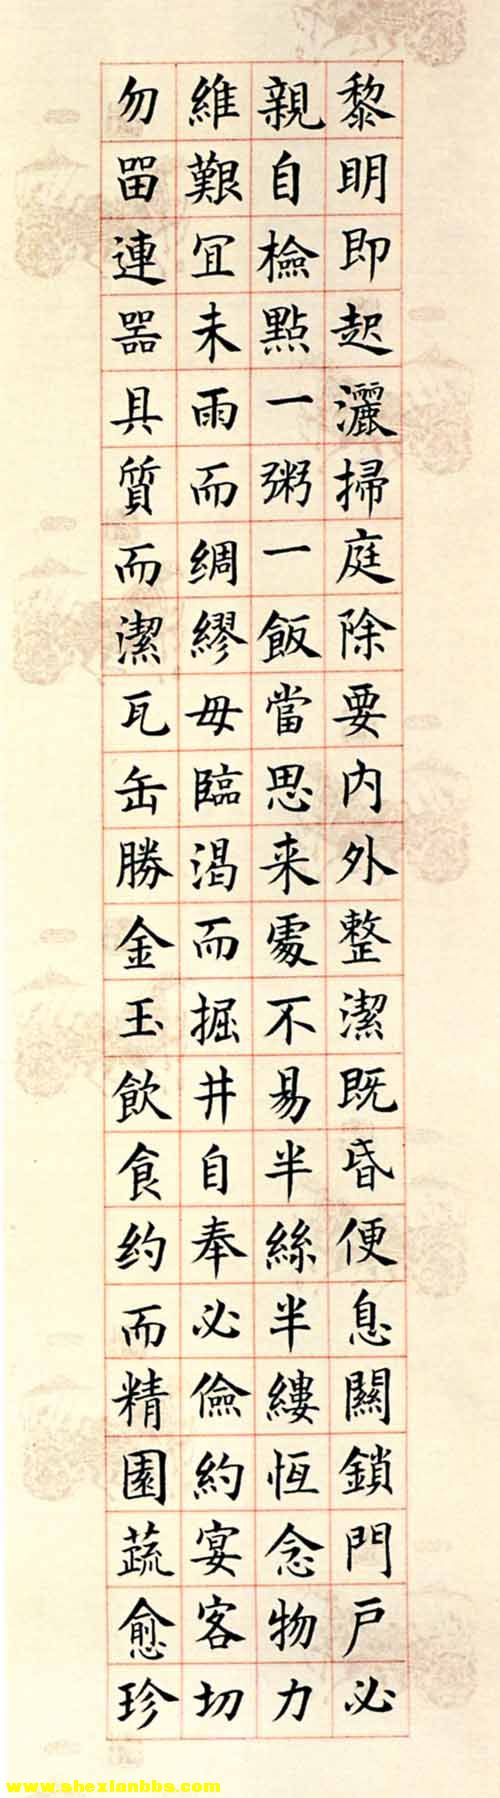 黎明即起灑掃庭除要内外整潔既昏便息關鎖門户必
親自檢點一粥一飯當思来處不易半絲半縷恆念物力
維艱冝未雨而绸繆毋臨渴而掘井自奉必儉約宴客切
勿留連器具質而潔瓦缶勝金玉飲食约而精園蔬愈珍
www.shexianbbs.com